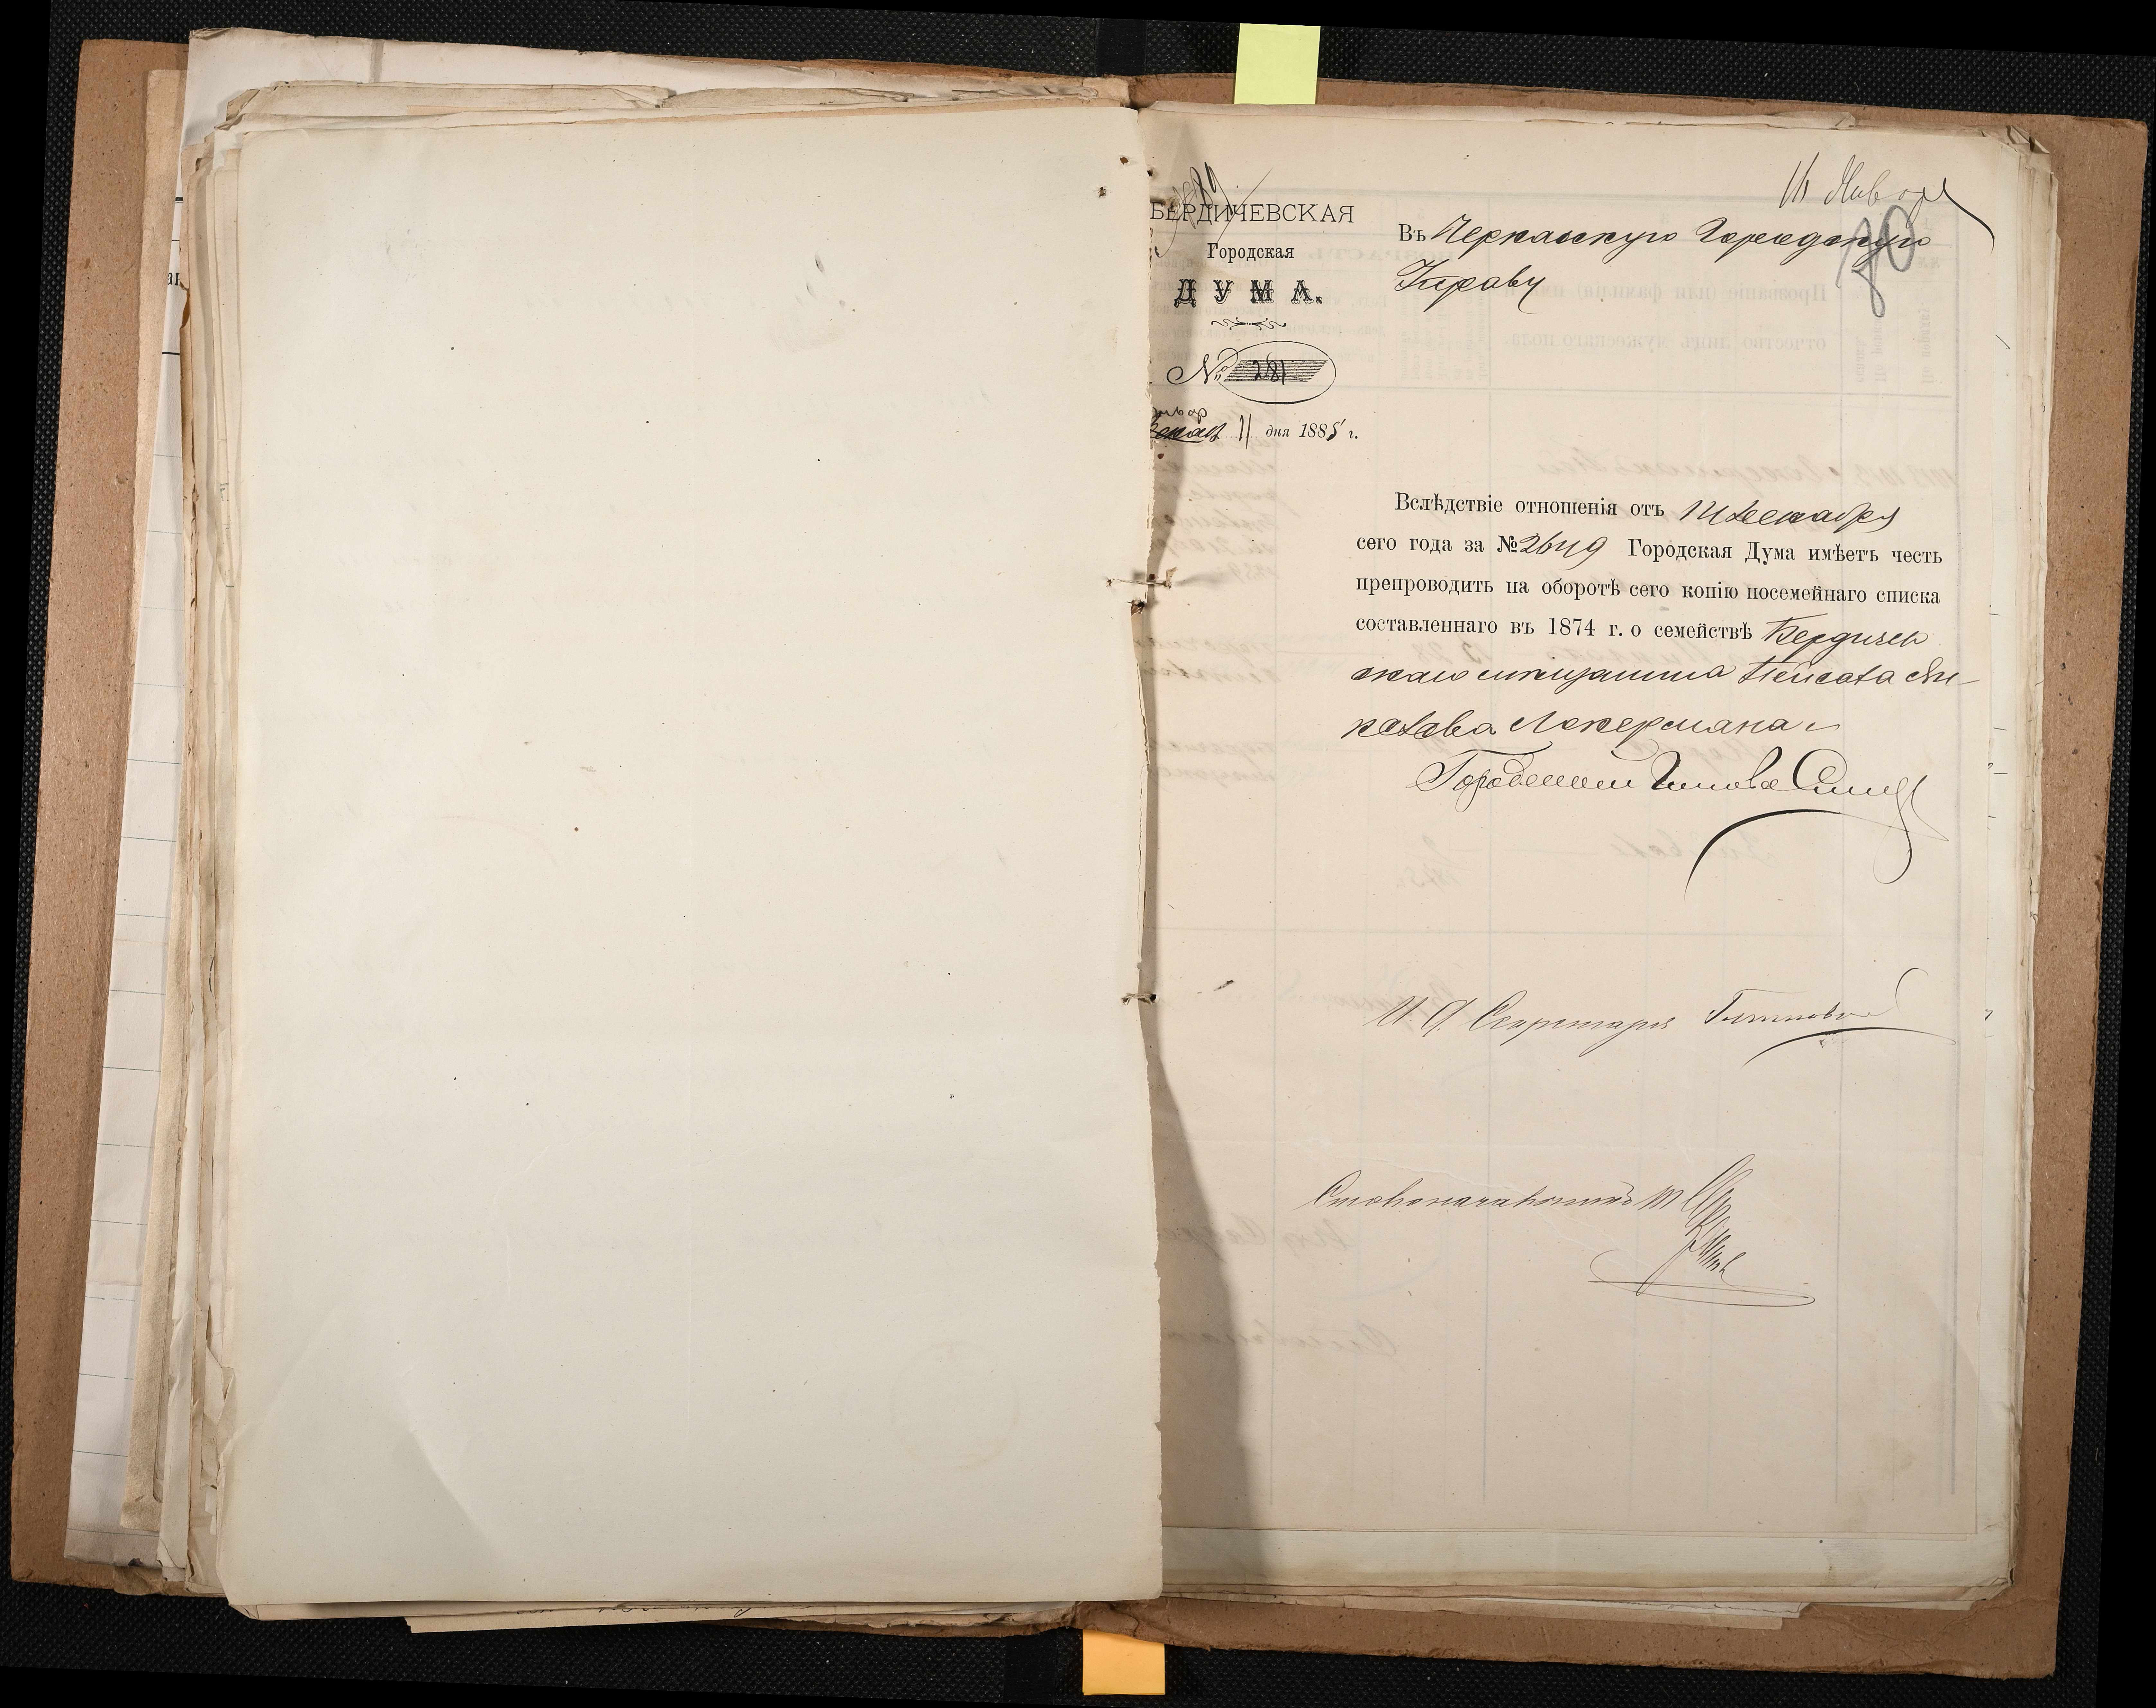 16 Янвαря
80
БЕРДИЧЕВСКАЯ
Городская
ДУМА.
№ 281
11 дня 1885 г.
Въ Черкасскую Городскую
Управу
Вслѣдствіе отношенія отъ Декабря
сего года за № 2649 Городская Дума имѣетъ честь
препроводить на оборотѣ сего копію посемейнаго списка
составленнаго въ 1874 г. о семействѣ Бердичев
скаго мѣщанина
Акермана
Городской Голова
И. Д. Секретаря
Столоначальникъ